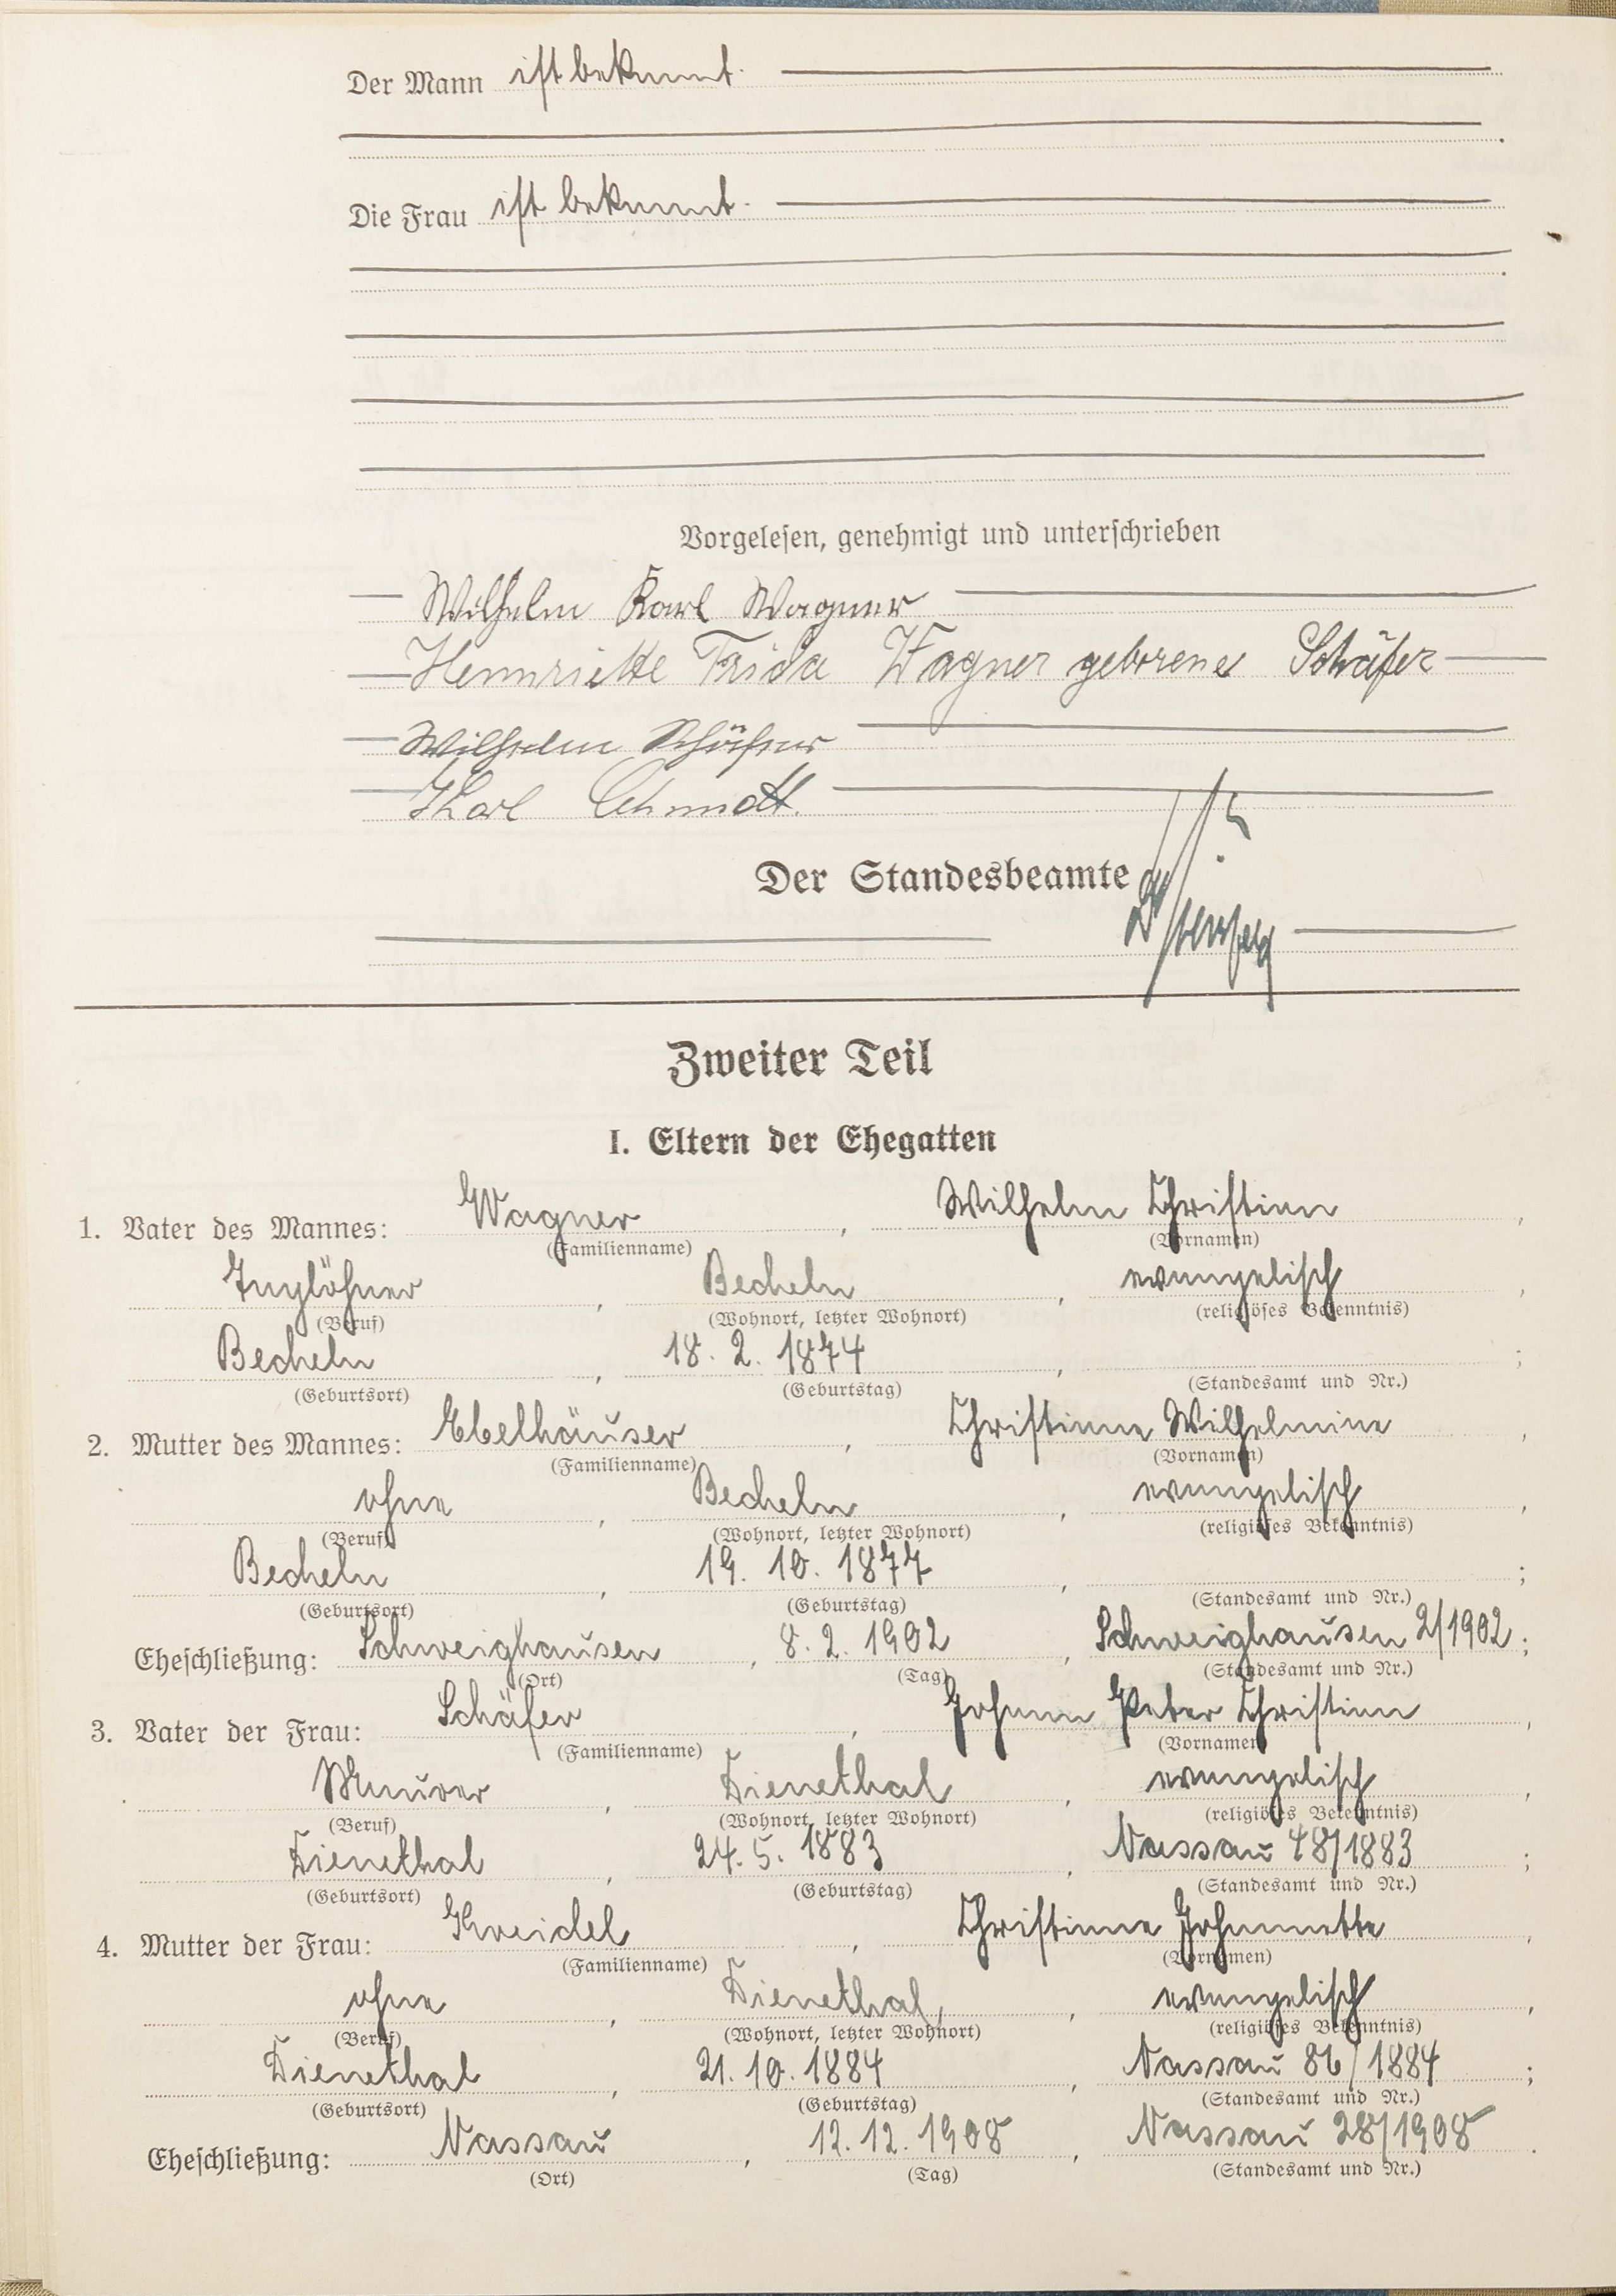 Der Mann ist bekannt.
Die Frau ist bekannt.
Vorgelesen, genehmigt und unterschrieben
Wilhelm Karl Wagner
Hennriette Frida Wagner geborene Schäfer
Wilhelm Schäfer
Karl Schmidt.
Der Standesbeamte
Zweiter Teil
I. Eltern der Ehegatten
1. Vater des Mannes: Wagner, Wilhelm Christian,
(Familienname) (Vornamen)
Taglöhner, Becheln, evangelisch,
(Beruf) (Wohnort, letzter Wohnort) (religiöses Bekenntnis)
Becheln, 18. 2. 1874, ;
(Geburtsort) (Geburtstag) (Standesamt und Nr.)
2. Mutter des Mannes: Ebelhäuser, Christiane Wilhelmine,
(Familienname) (Vornamen)
ohne, Becheln, evangelisch,
(Beruf) (Wohnort, letzter Wohnort) (religiöses Bekenntnis)
Becheln, 19. 10. 1877, ;
(Geburtsort) (Geburtstag) (Standesamt und Nr.)
Eheschließung: Schweighausen, 8. 2. 1902, Schweighausen 2/1902;
(Ort) (Tag) (Standesamt und Nr.)
3. Vater der Frau: Schäfer, Johann Peter Christian,
(Familienname) (Vornamen)
Maurer, Dienethal, evangelisch,
(Beruf) (Wohnort, letzter Wohnort) (religiöses Bekenntnis)
Dienethal, 24. 5. 1883, Nassau 48/1883;
(Geburtsort) (Geburtstag) (Standesamt und Nr.)
4. Mutter der Frau: Kreidel, Christiane Johannette,
(Familienname) (Vornamen)
ohne, Dienethal, evangelisch,
(Beruf) (Wohnort, letzter Wohnort) (religiöses Bekenntnis)
Dienethal, 21. 10. 1884, Nassau 86/1884;
(Geburtsort) (Geburtstag) (Standesamt und Nr.)
Eheschließung: Nassau, 12. 12. 1908, Nassau 28/1908.
(Ort) (Tag) (Standesamt und Nr.)